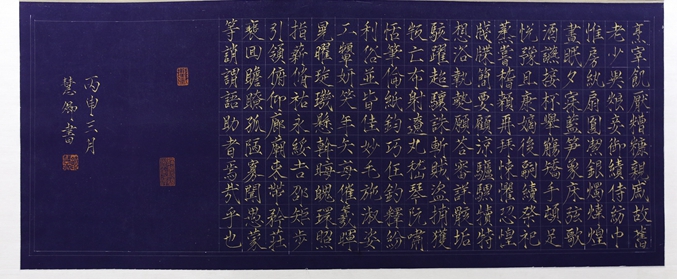 烹宰飢厭糟糠親戚故舊
老少異糧妾御績侍紡巾
帷房紈扇圓潔銀燭煒煌
晝眠夕寐藍筍象床弦歌
酒讌接杯舉觴矯手頓足
悅豫且康嫡後嗣續祭祀
蒸嘗稽顙再拜悚懼恐惶
牋牒簡要顧涼驢騾犢特
想浴執熱願答審詳骸垢
駭躍超驤誅斬賊盜捕獲
叛亡布射遼丸嵇琴阮嘯
恬筆倫紙鈞巧任釣釋紛
利俗並皆佳妙毛施淑姿
工顰妍笑年矢每催羲暉
晃曜琁璣懸斡晦魄環照
指薪修祜永綏吉邵矩步
引領俯仰廊廟束帶矜莊
徘徊瞻眺孤陋寡聞愚蒙
等誚謂語助者焉哉乎也
丙申三月
慧卿書